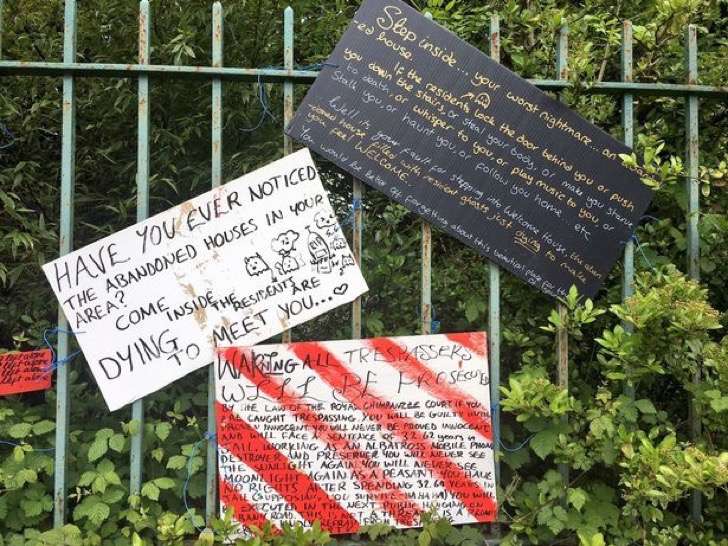 HAVE YOU EVER NOTICED
THE ABANDONED HOUSES IN YOUR
AREA?
COME INSIDE, THE RESIDENTS ARE
DYING TO MEET YOU...
Step inside... your worst nightmare... an
-ed house.
If the residents lock the door behind you or push
you down the stairs, or steal your body, or make you starve
to death, or whisper to you, or play music to you or
Stalk you, or haunt you, or follow you home, etc
Well its your fault for stepping into Welcome House, the aban
-doned house filled with resident ghosts just dying to make
you feel WELCOME.
You would be better off forgetting about this beautiful place for the
WARNING ALL TRESPASSERS
WILL BE PROSECUTED
BY THE LAW OF THE ROYAL CHIMPANZEE COURT IF YOU
ARE CAUGHT TRESPASSING YOU WILL BE GUILTY UNTIL
INNOCENT YOU WILL NEVER BE PROVED INNOCENT
AND WILL FACE A SENTENCE OF 32.62 years in
JAIL, WORKING AS AN ALBATROSS MOBILE PHONE
DESTROYER AND PRESERVER YOU WILL NEVER SEE
THE SUNLIGHT AGAIN YOU WILL NEVER SEE
MOONLIGHT AGAIN AS A PEASANT YOU HAVE
NO RIGHTS AFTER SPENDING 32.62 YEARS IN
JAIL (SUPPOSING YOU SURVIVE HA HA HA) YOU WILL
EXECUTED IN THE NEXT PUBLIC HANGING ON
ROAD. THIS IS NOT A THREAT IS A
KINDLY REFRAIN FROM